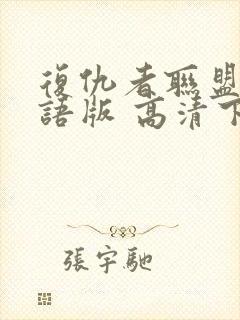 復仇者聯盟
語版 高清下
張宇馳